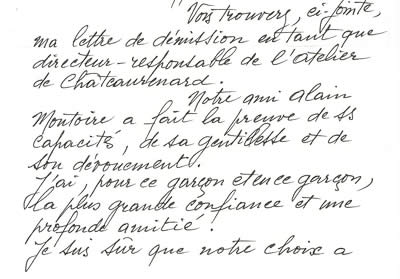 Vous trouverez, ci-jointe,
ma lettre de démission en tant que
directeur-responsable de l'atelier
de Chateaurenard.
Notre ami Alain
Montoire a fait la preuve de ss
capacité, de sa gentillesse et de
son dévouement.
J'ai, pour ce garçon et en ce garçon,
la plus grande confiance et une
profonde amitié.
Je suis sûr que notre choix a